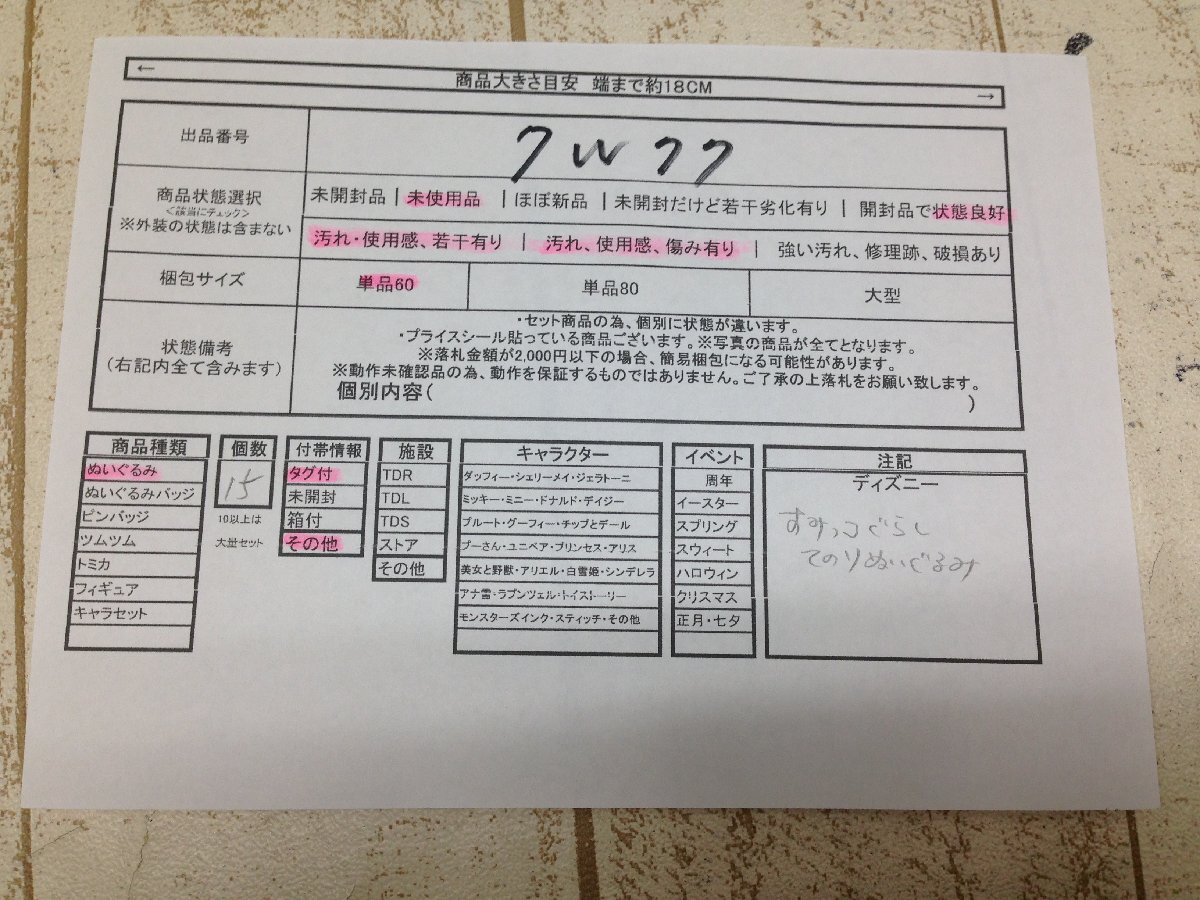 ← 商品大きさ目安 端まで約18CM →
出品番号 7W77
商品状態選択
<該当にチェック>
※外装の状態は含まない
未開封品 | 未使用品 | ほぼ新品 | 未開封だけど若干劣化有り | 開封品で状態良好
汚れ・使用感、若干有り | 汚れ、使用感、傷み有り | 強い汚れ、修理跡、破損あり
梱包サイズ 単品60 単品80 大型
状態備考
(右記内全て含みます)
・セット商品の為、個別に状態が違います。
・プライスシール貼っている商品ございます。※写真の商品が全てとなります。
※落札金額が2,000円以下の場合、簡易梱包になる可能性があります。
※動作未確認品の為、動作を保証するものではありません。ご了承の上落札をお願い致します。
個別内容( )
商品種類
ぬいぐるみ
ぬいぐるみバッジ
ピンバッジ
ツムツム
トミカ
フィギュア
キャラセット
個数
15
10以上は
大量セット
付帯情報
タグ付
未開封
箱付
その他
施設
TDR
TDL
TDS
ストア
その他
キャラクター
ダッフィー・シェリーメイ・ジェラトーニ
ミッキー・ミニー・ドナルド・デイジー
プルート・グーフィー・チップとデール
プーさん・ユニベア・プリンセス・アリス
美女と野獣・アリエル・白雪姫・シンデレラ
アナ雪・ラプンツェル・トイストーリー
モンスターズインク・スティッチ・その他
イベント
周年
イースター
スプリング
スウィート
ハロウィン
クリスマス
正月・七夕
注記
ディズニー
すみっコぐらし
てのりぬいぐるみ